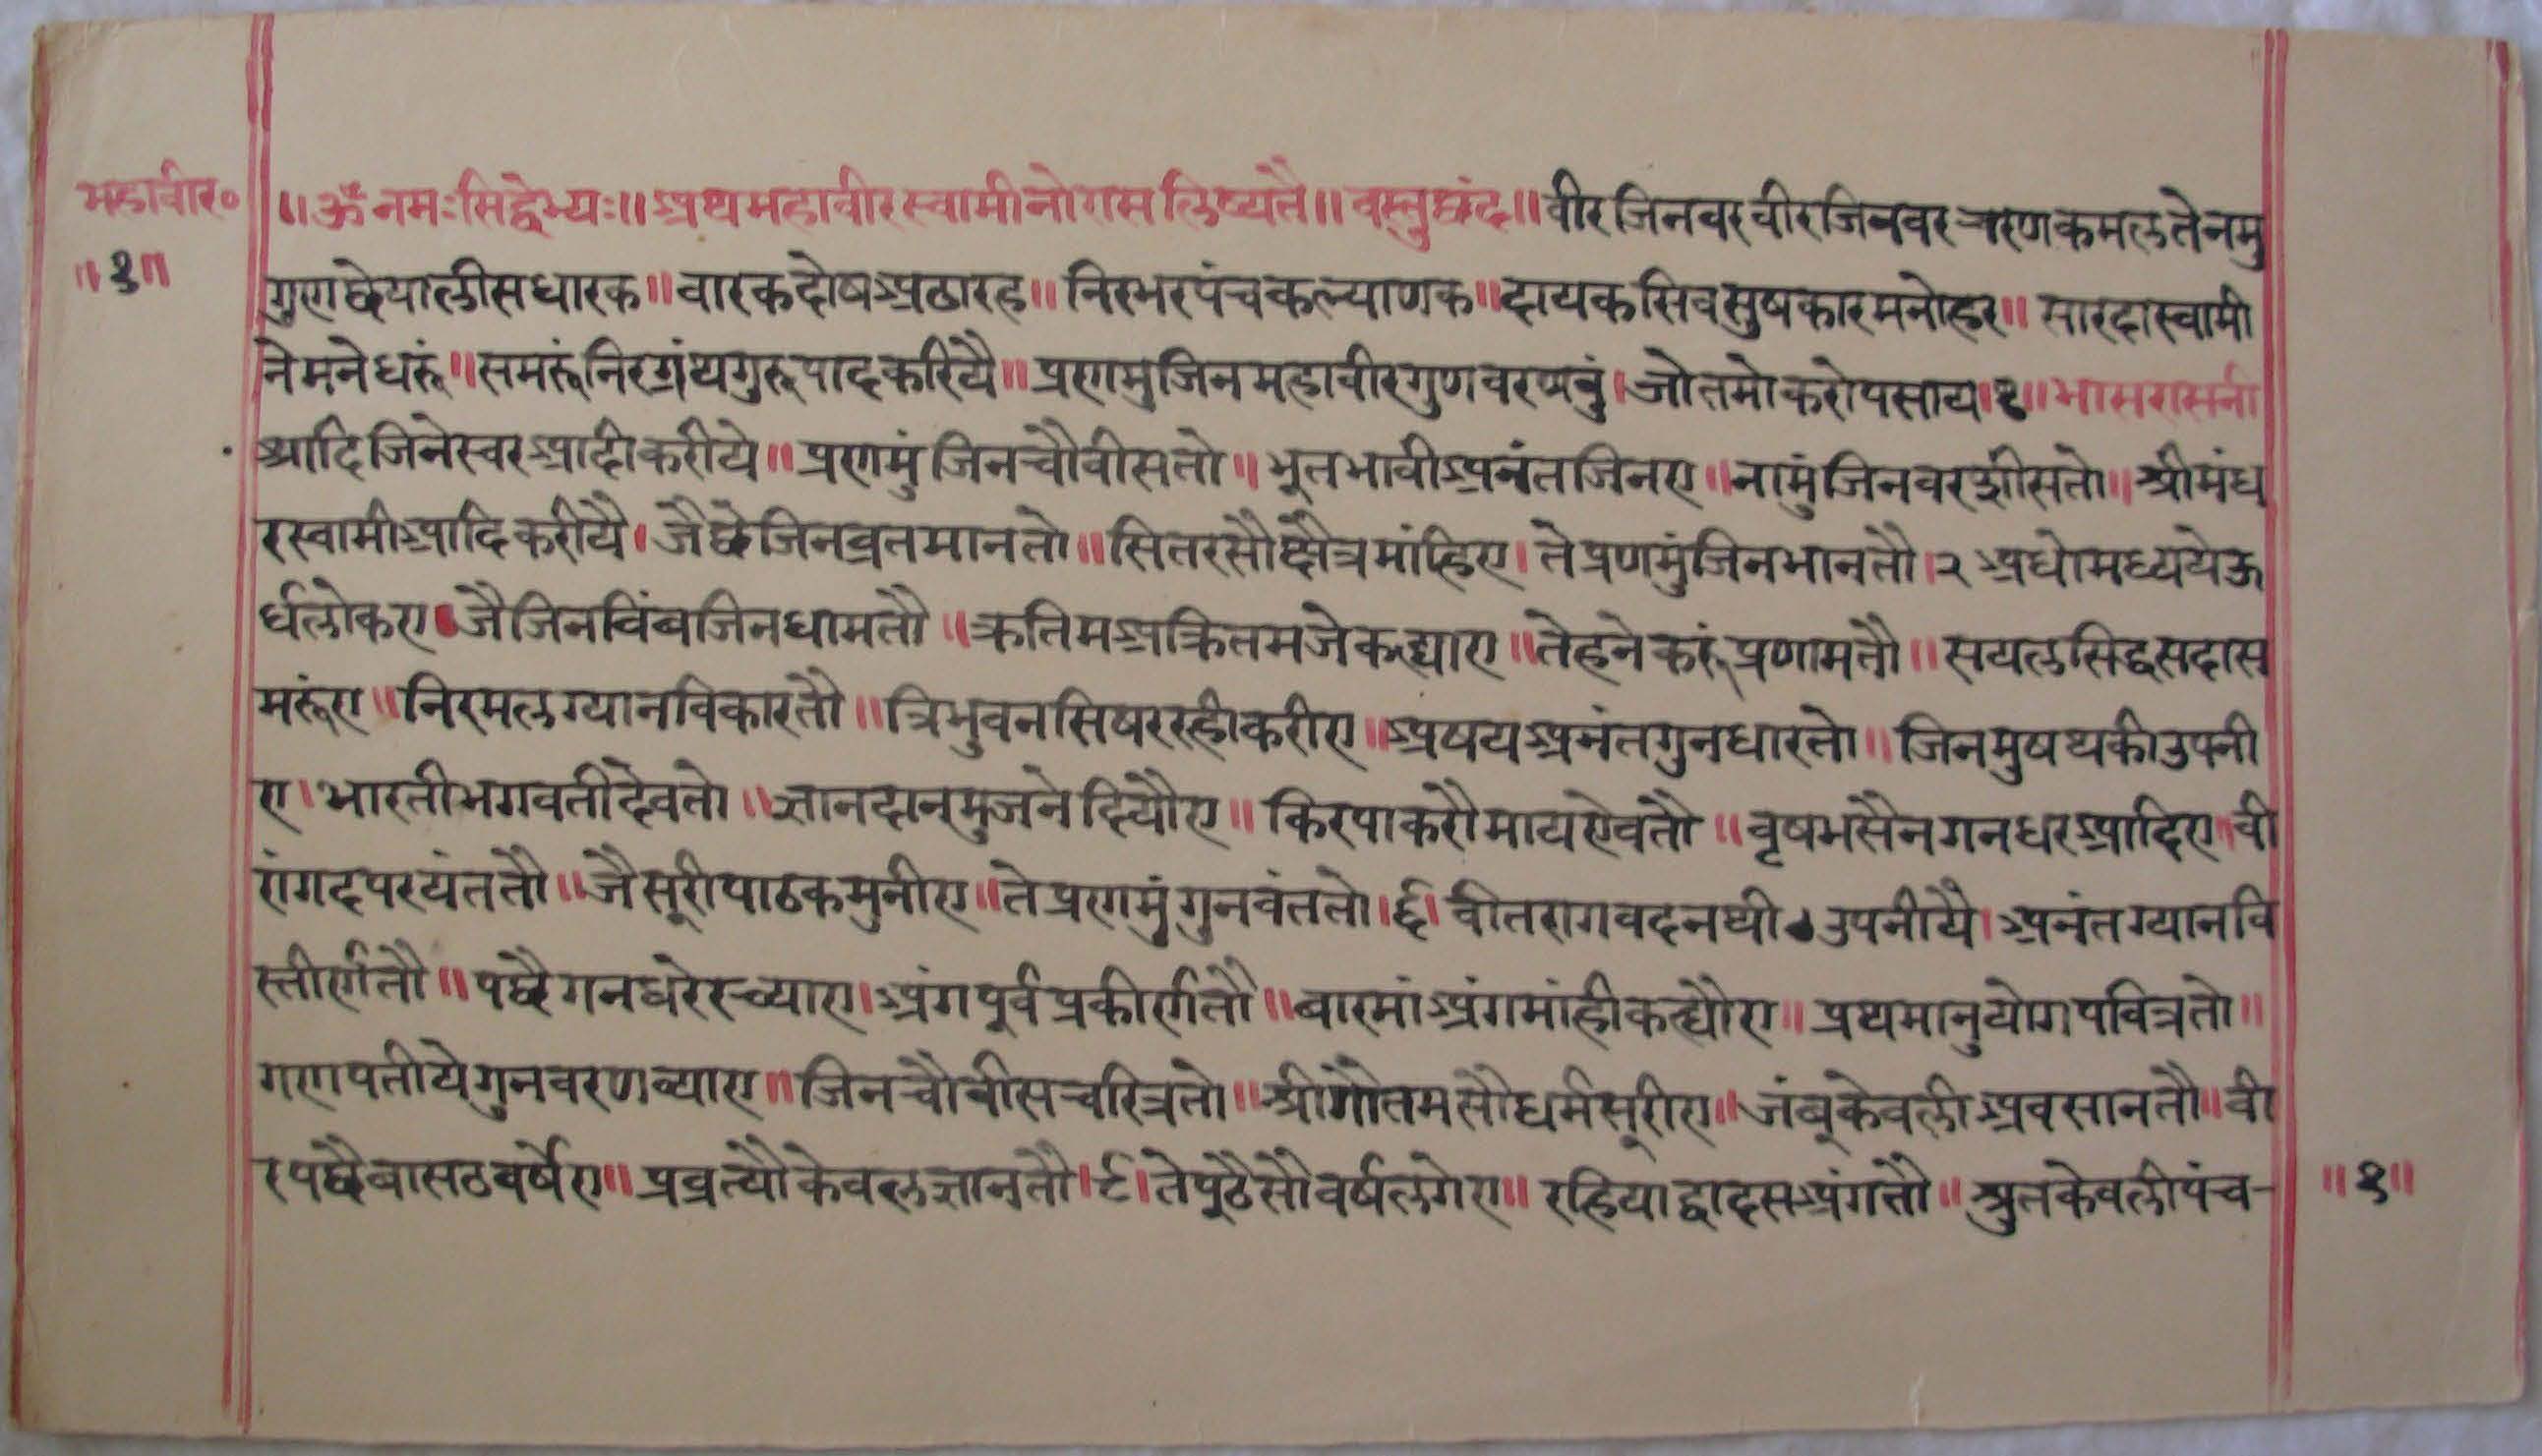 महावीर०
॥१॥
॥ॐ नमःसिद्धेभ्यः॥ अथ महावीर स्वामी नो रास लिष्यतै॥ वस्तु छंद॥ वीर जिनवर वीर जिनवर चरण कमल ते नमु
गुण छेयालीस धारक॥ वारक दोष अठारह॥ निरभर पंच कल्याणक॥ दायक सिव सुषकार मनोहर॥ सारदा स्वामी
ने मने धरुं॥ समरूं निरग्रंथ गुरू पाद करियै॥ प्रणमु जिन महावीर गुण वरणवुं। जो तमो करो पसाय।१॥ भास रासनी
आदि जिनेस्वर आदी करीये॥ प्रणमुं जिन चौवीस तो॥ भूत भावी अनंत जिन ए॥ नामुं जिनवर शीस तो॥ श्रीमंध
र स्वामी आदि करीयै। जै छे जिन व्रतमान तो॥ सितर सौ क्षैत्र मांहि ए। ते प्रणमुं जिन भान तौ।२ अधो मध्य ये ऊ
र्धलोक ए। जै जिन विंव जिन धाम तौ॥ क्रतिम अक्रितम जे कह्या ए॥ तेहने करूं प्रणाम तौ॥ सयल सिद्ध सदा स
मरूं ए॥ निरमल ग्यान विकार तौ॥ त्रिभुवन सिषर रही करी ए॥ अषय अनंत गुन धार तो॥ जिन मुष थकी उपनी
ए। भारती भगवती देव तो॥ ज्ञान दान मुजने दियौ ए॥ किरपा करौ माय ऐव तौ॥ वृषभसैन गनधर आदि ए॥ वी
रांगद परयंत तौ॥ जै सूरी पाठक मुनी ए॥ ते प्रणमुं गुनवंत तो।६। वीतराग वदन थी उपनीयै। अनंत ग्यान वि
स्तीर्ण तौ॥ पछै गनधरे रच्या ए। अंग पूर्व प्रकीर्ण तौ॥ बारमां अंग मांही कह्यौ ए॥ प्रथमानुयोग पवित्र तो॥
गणपतीये गुन वरणव्या ए॥ जिन चौवीस चरित्र तो॥ श्री गौतम सौधर्म सूरी ए॥ जंबू केवली अवसान तौ॥ वी
र पछै बासठ वर्षे ए॥ प्रव्रत्यौ केवल ज्ञान तौ।९। ते पूठै सौ वर्ष लगे ए॥ रहिया द्वादस अंग तौ॥ श्रुत केवली पंच-
॥१॥